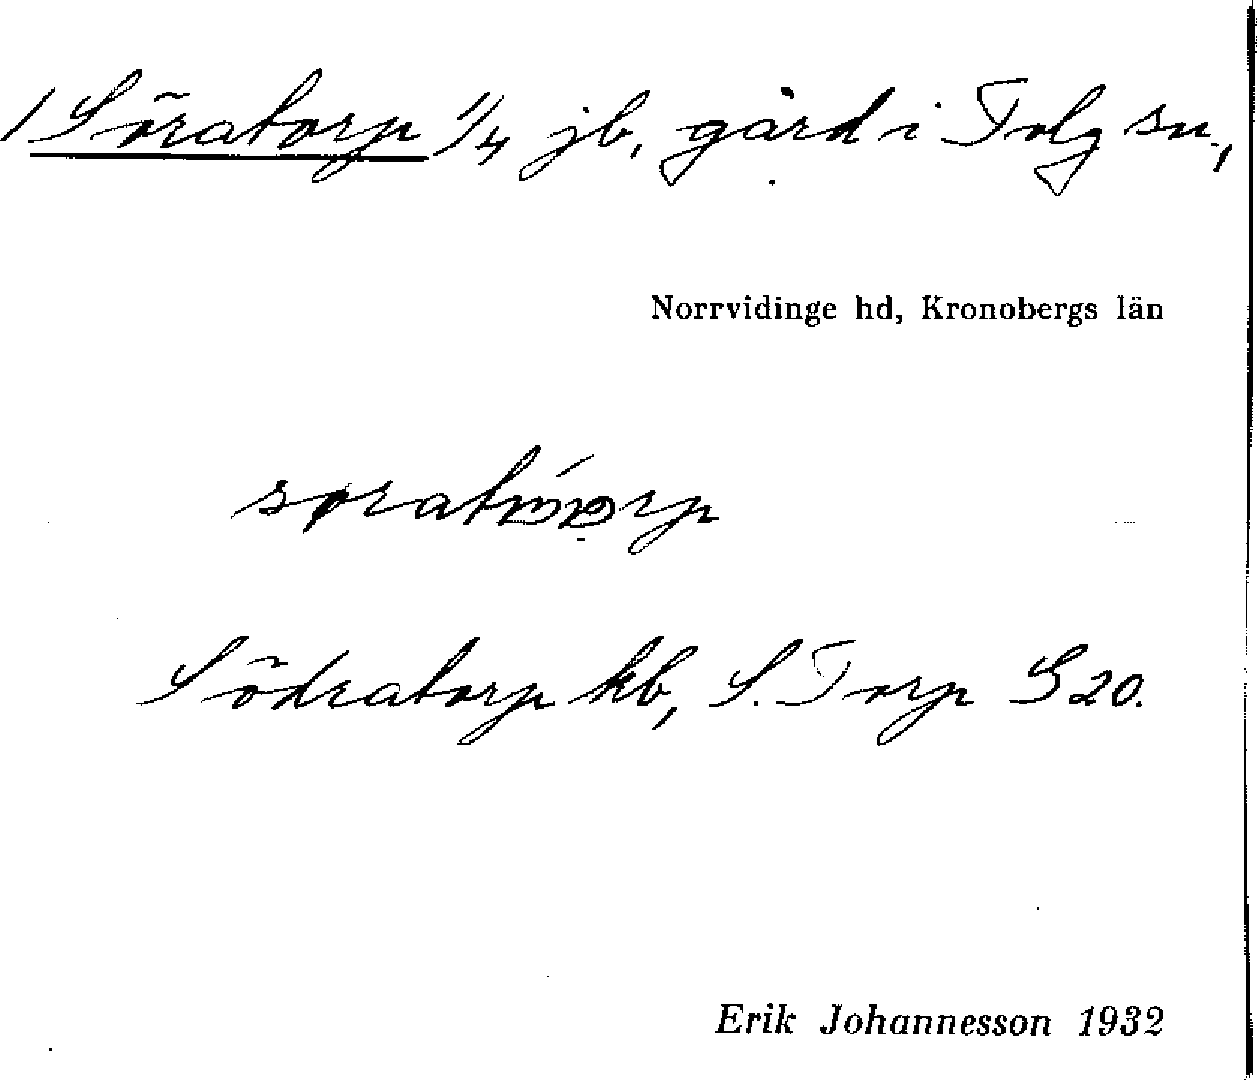 / Söratorp 1/4 jb, gård i Tolg sn.,
Norrvidinge hd, Kronobergs län
Södratorp kb, S. Torp G 20.
Erik Johannesson 1932